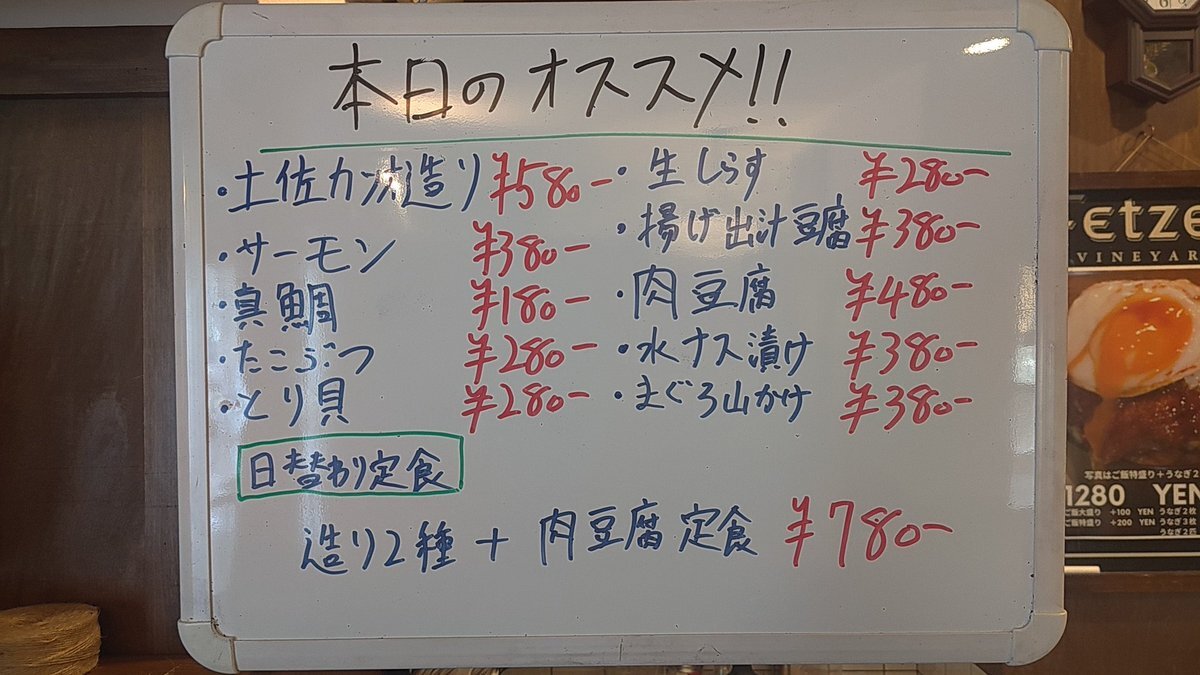 本日のオススメ!!
・土佐カツオ造り ¥580-
・サーモン ¥380-
・真鯛 ¥180-
・たこぶつ ¥280-
・とり貝 ¥280-
・生しらす ¥280-
・揚げ出汁豆腐 ¥380-
・肉豆腐 ¥480-
・水ナス漬け ¥380-
・まぐろ山かけ ¥380-
日替わり定食
造り2種 + 肉豆腐定食 ¥780-
etze
VINEYAR
写真はご飯特盛り+うなぎ2
1280 YEN
ご飯大盛り +100 YEN うなぎ2枚
ご飯特盛り +200 YEN うなぎ3枚